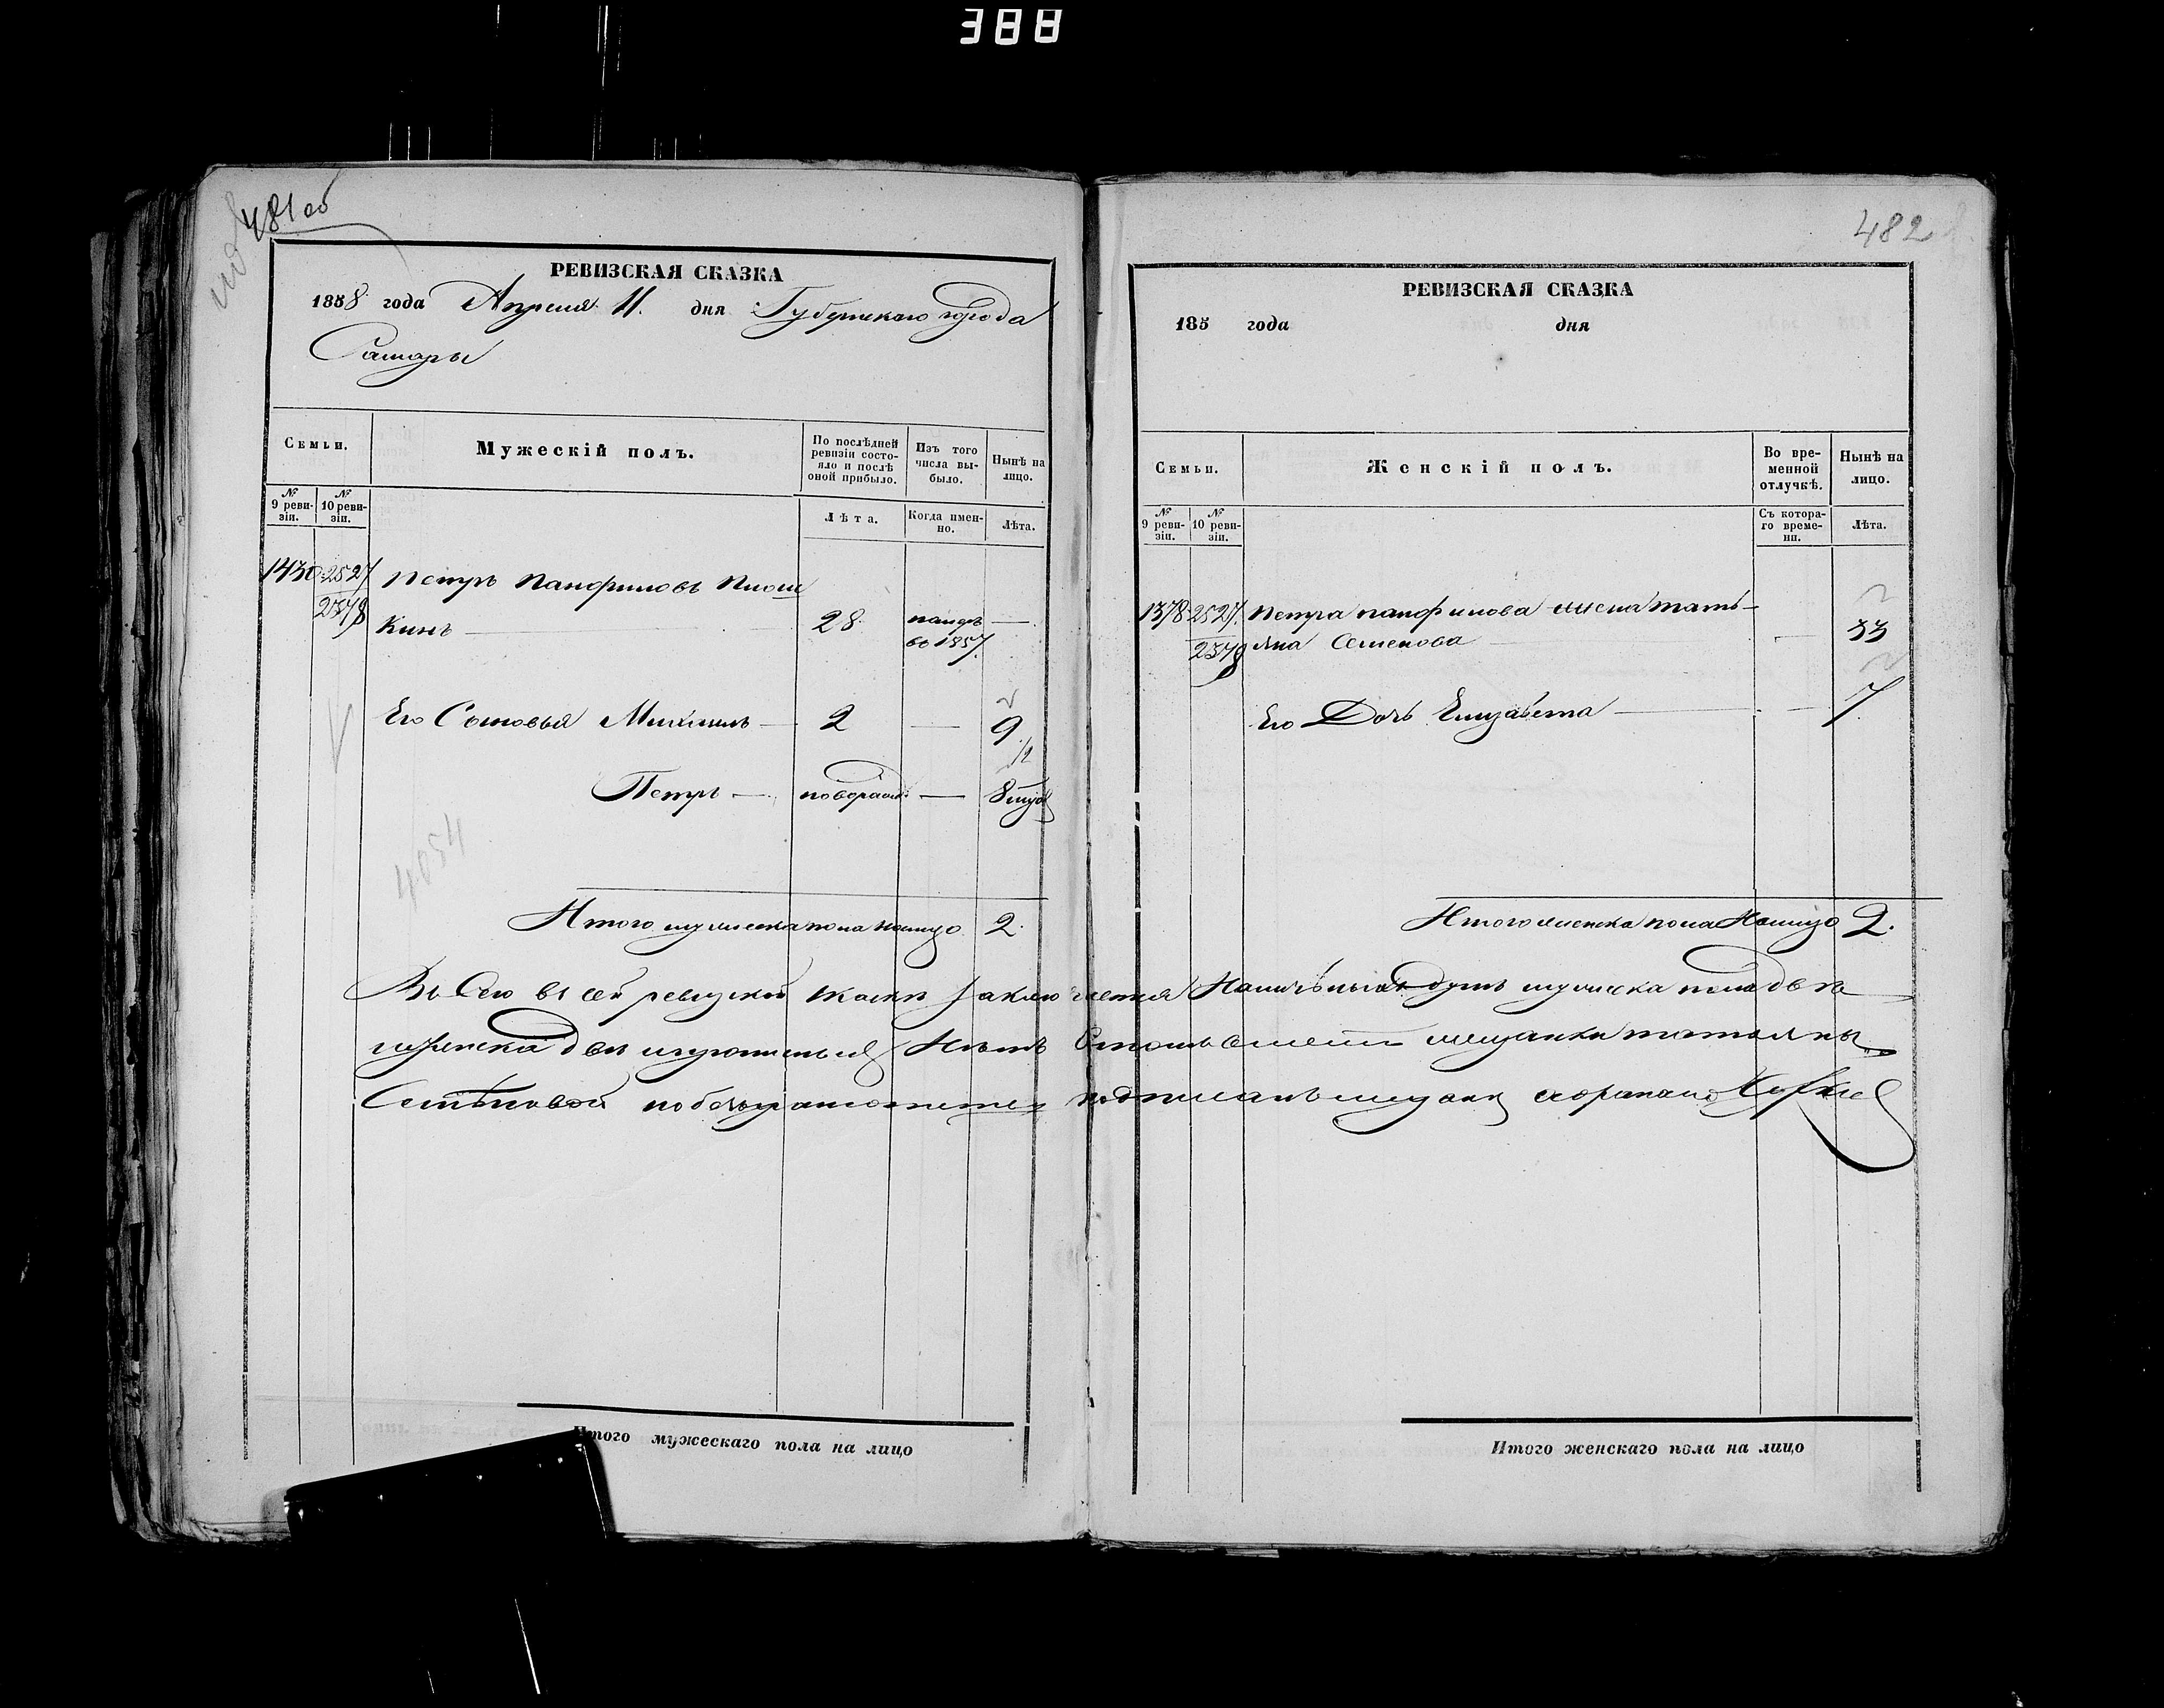 388
481 об
РЕВИЗСКАЯ СКАЗКА
1858 года Апреля 11. дня Губернскаго города
Самары
Семьи.
Мужескій полъ.
По послѣдней ревизіи состояло и послѣ оной прибыло.
Изъ того числа выбыло.
Нынѣ на лицо.
№ 9 ревизіи.
№ 10 ревизіи.
Лѣта.
Когда именно.
Лѣта.
1430 2527 Петръ Панфиловъ
2378 кинъ 28 — въ 1857.
Его Сыновья Михаилъ — 2 — 9
1/2
Петръ — —
4054
Итого мужеска пола налицо 2.
Итого мужескаго пола на лицо
482
РЕВИЗСКАЯ СКАЗКА
185 года дня
Семьи.
Женскій полъ.
Во временной отлучкѣ.
Нынѣ на лицо.
№ 9 ревизіи.
№ 10 ревизіи.
Съ котораго времени.
Лѣта.
1378 2527. Петра панфилова жена тать-
2378 яна Семенова — 33
Его Дочь Елизавета — 7
Итого женска пола Налицо 2.
Всего въ сей ревизской скаски заключается Наличныхъ душъ мужеска пола две
женска две Нѣтъ мещанки татьяны
Семѣновой подписалъ мещан
Итого женскаго пола на лицо